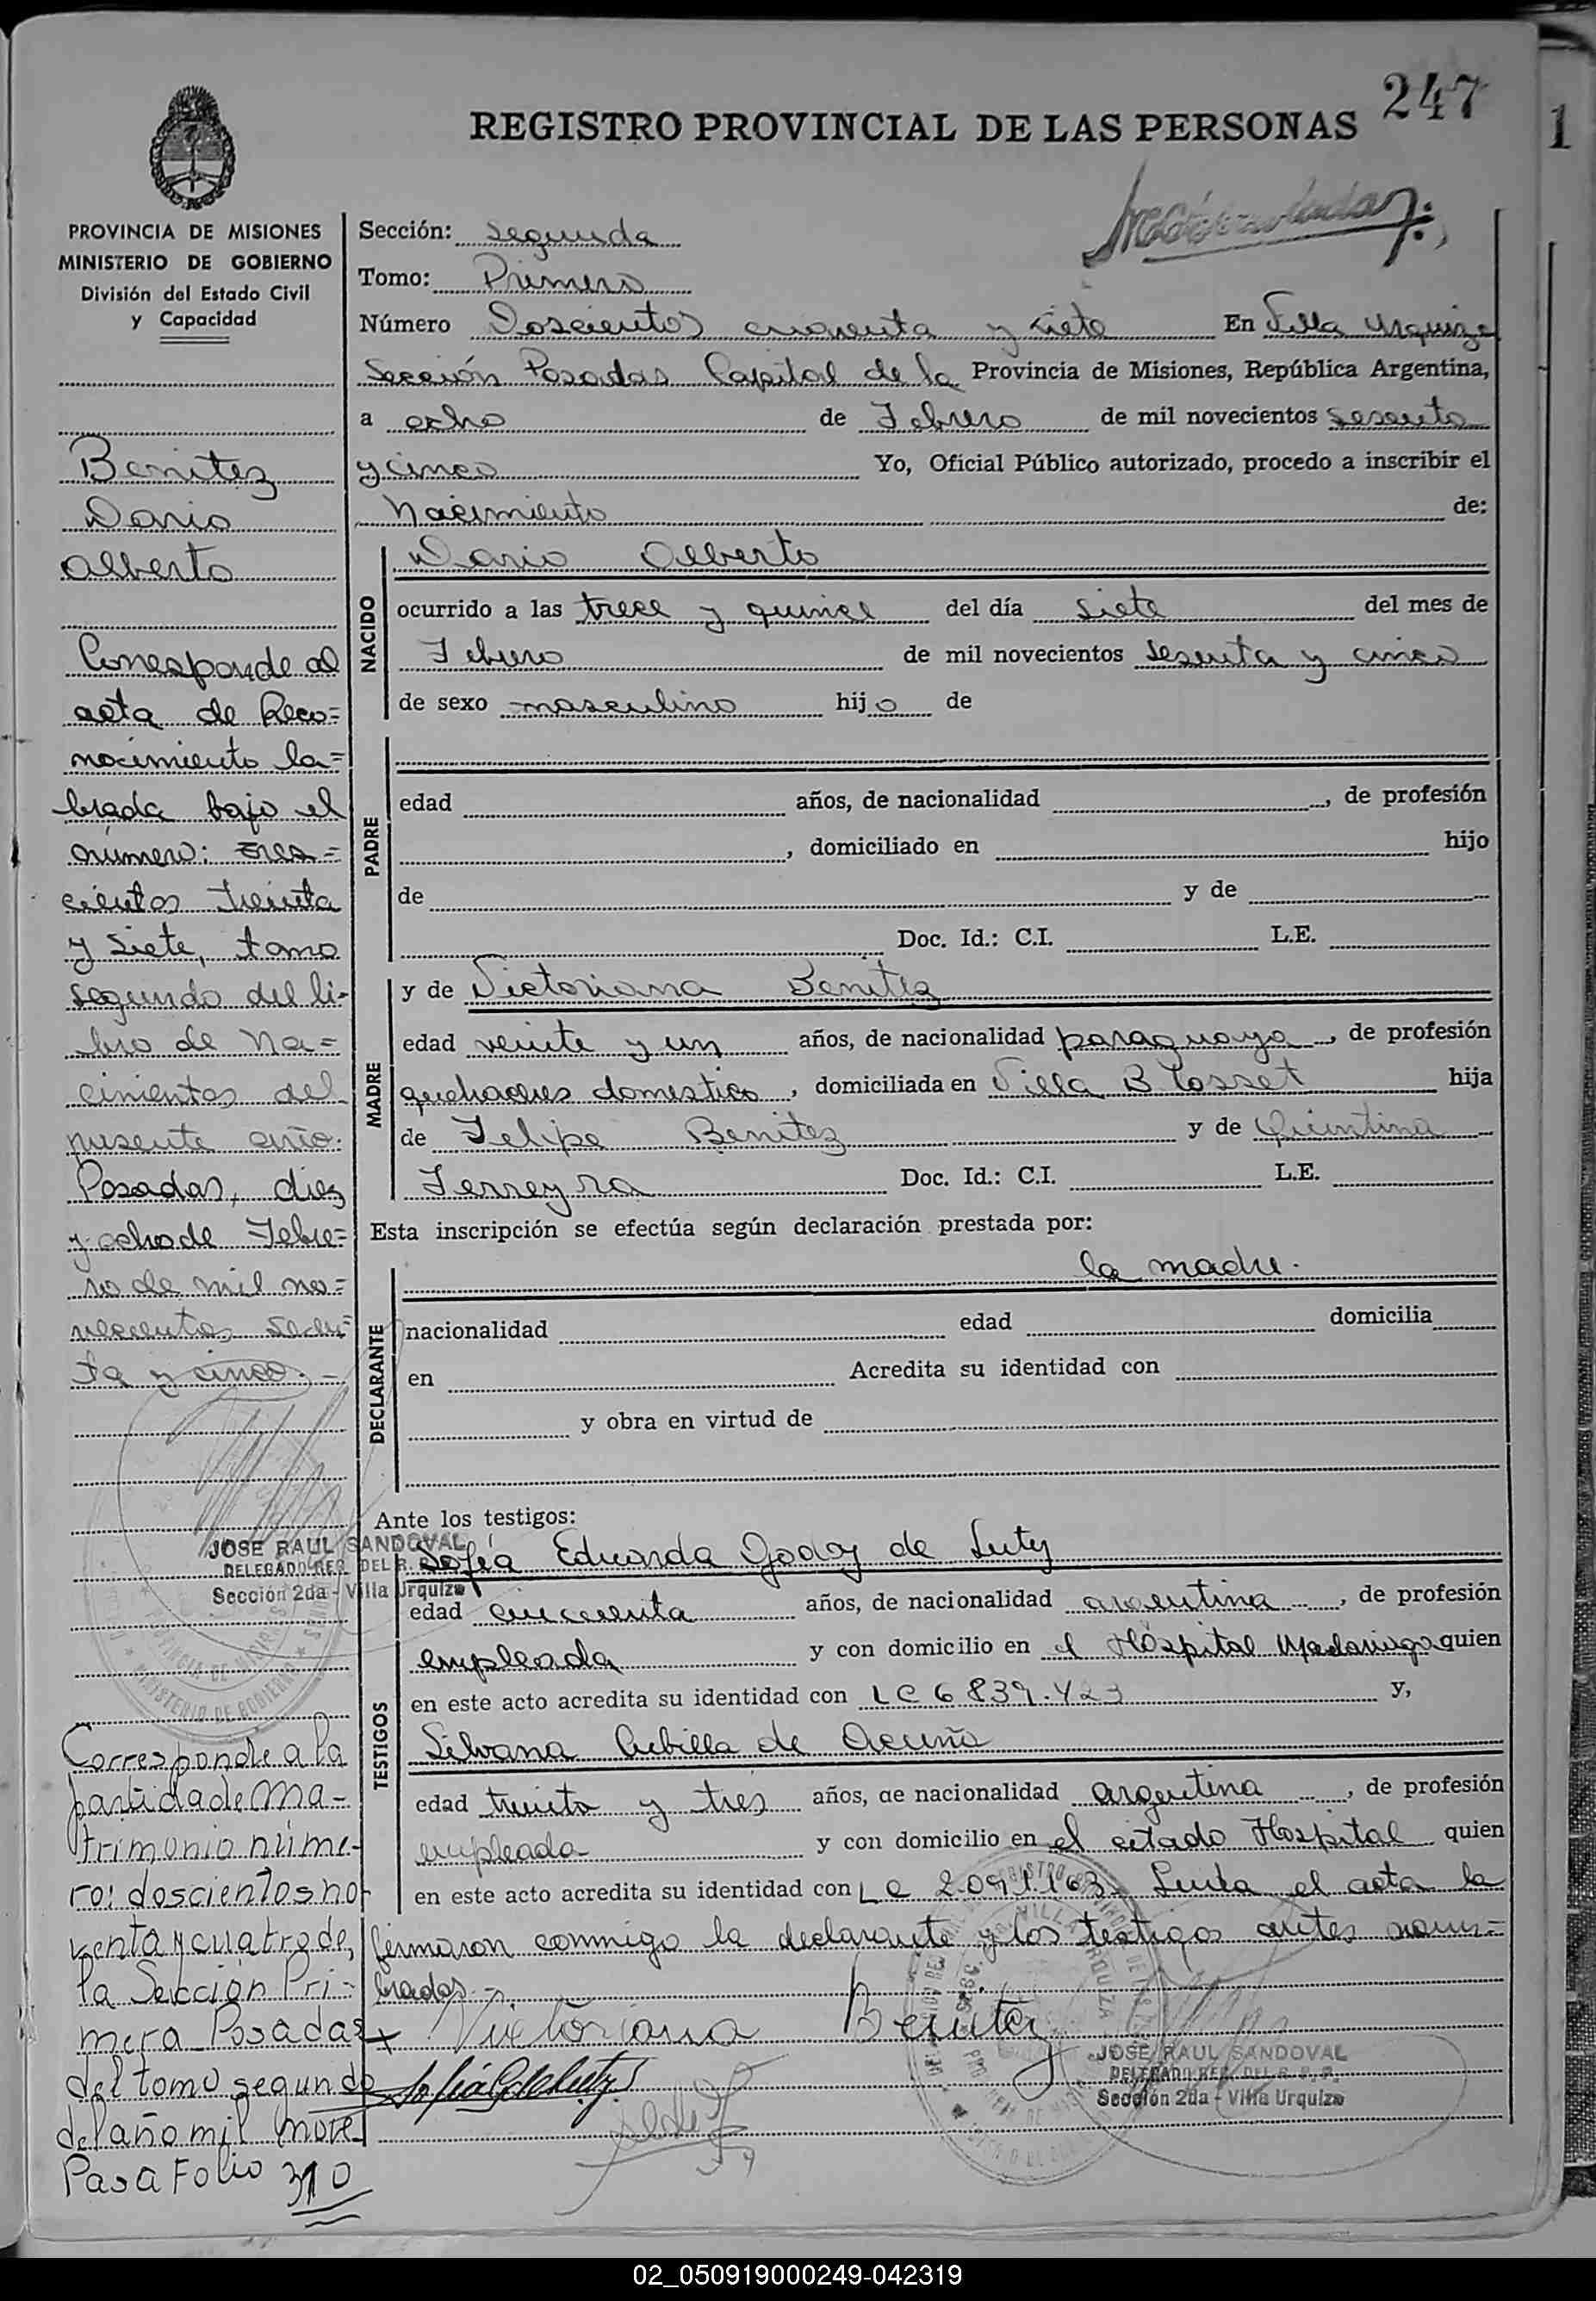 247
1
REGISTRO PROVINCIAL DE LAS PERSONAS
PROVINCIA DE MISIONES
MINISTERIO DE GOBIERNO
División del Estado Civil
y Capacidad
Benitez
Dario
Alberto
Corresponde al
acta de Reco=
nocimiento la=
brada bajo el
número: tres=
cientos treinta
y siete, tomo
segundo del li-
bro de Na=
cimientos del
presente año.
Posadas, diez
y ocho de Febre=
ro de mil no=
vecientos sesen=
ta y cinco. -
JOSE RAUL SANDOVAL
Sección 2da - Villa Urquiza
MINISTERIO DE GOBIERNO
Corresponde a la
partida de ma-
trimonio núme-
ro: doscientos no
venta y cuatro de,
la Sección Pri-
mera Posadas
del tomo segundo
del año mil nove
Pasa Folio 310
Sección: Segunda
Tomo: Primero
Número Doscientos cuarenta y siete En Villa Urquiza
Sección Posadas Capital de la Provincia de Misiones, República Argentina,
a ocho de Febrero de mil novecientos sesenta
y cinco Yo, Oficial Público autorizado, procedo a inscribir el
Nacimiento de:
NACIDO
Dario Alberto
ocurrido a las trece y quince del día siete del mes de
Febrero de mil novecientos sesenta y cinco
de sexo masculino hijo de
PADRE
edad años, de nacionalidad , de profesión
, domiciliado en hijo
de y de
Doc. Id.: C.I. L.E.
MADRE
y de Victoriana Benitez
edad veinte y un años, de nacionalidad paraguaya, de profesión
quehaceres domestico, domiciliada en Villa Blosset hija
de Felipe Benitez y de Quintina
Ferreyra Doc. Id.: C.I. L.E.
Esta inscripción se efectúa según declaración prestada por:
DECLARANTE
la madre.
nacionalidad edad domicilia
en Acredita su identidad con
y obra en virtud de
Ante los testigos:
TESTIGOS
Sofia Eduarda Godoy de Luty
edad cincuenta años, de nacionalidad argentina, de profesión
empleada y con domicilio en el Hospital Madariaga quien
en este acto acredita su identidad con LC 6839.423 y,
Silvana Cubilla de Acuña
edad treinta y tres años, de nacionalidad argentina, de profesión
empleada y con domicilio en el citado Hospital quien
en este acto acredita su identidad con LC 2.091.163. Leida el acta la
firmaron conmigo la declarante y los testigos antes nom=
brados.-
x Victoriana Benitez
JOSE RAUL SANDOVAL
Sección 2da - Villa Urquiza
02_050919000249-042319